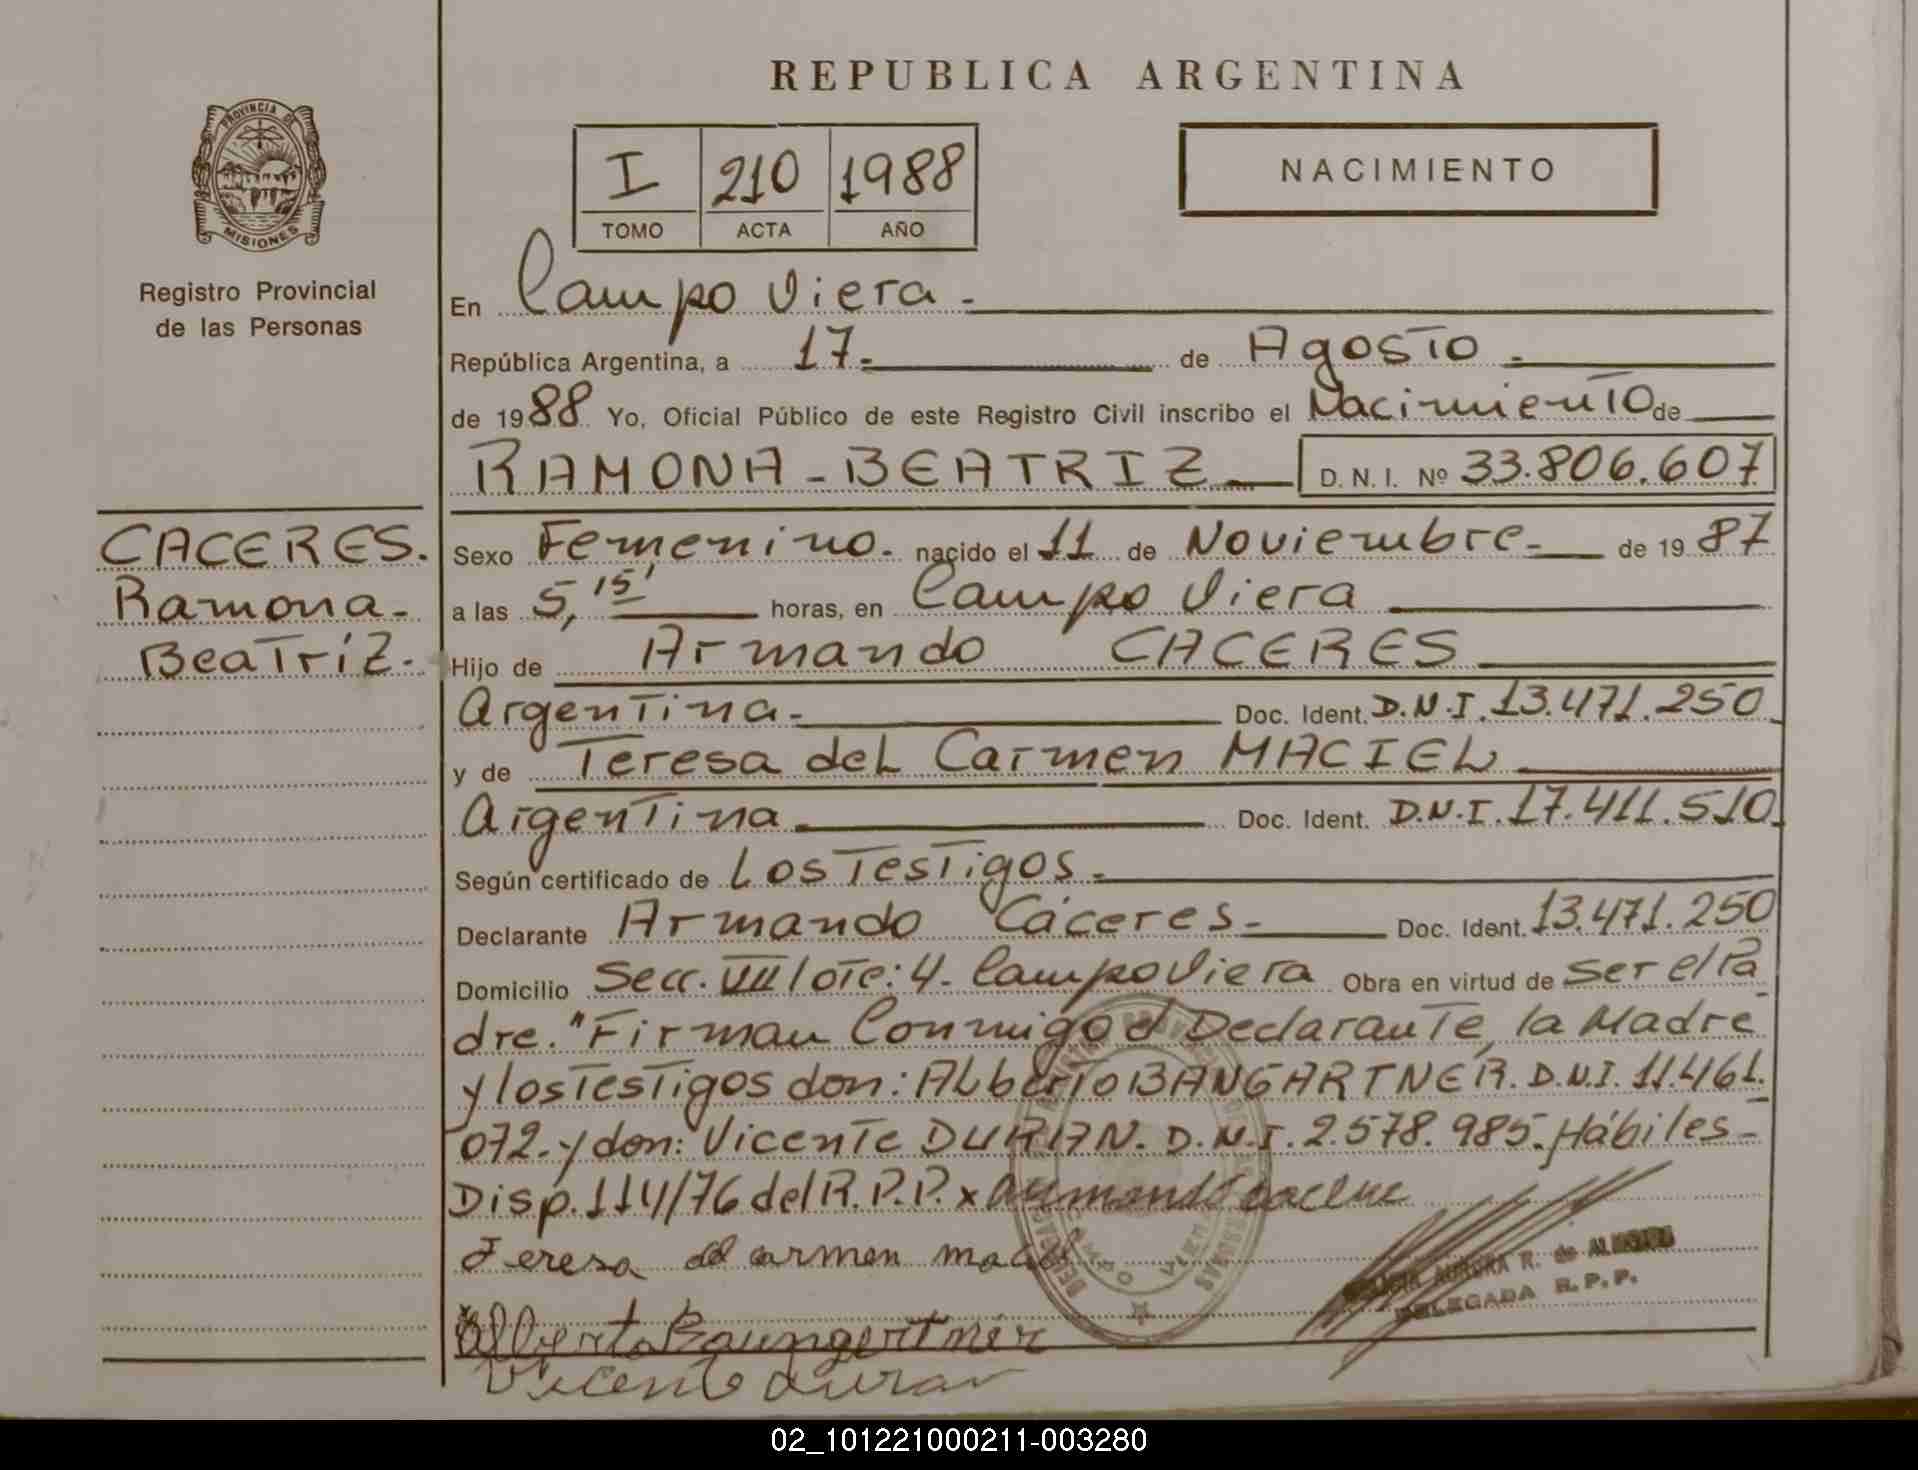 REPUBLICA ARGENTINA
PROVINCIA DE
MISIONES
Registro Provincial
de las Personas
I 210 1988
TOMO ACTA AÑO
NACIMIENTO
En Campo Viera -
República Argentina, a 17.- de Agosto -
de 1988 Yo, Oficial Público de este Registro Civil inscribo el Nacimiento de
RAMONA - BEATRIZ D. N. I. Nº 33.806.607
CACERES.
Ramona-
Beatriz.-
Sexo Femenino.- nacido el 11 de Noviembre- de 1987
a las 5,15' horas, en Campo Viera
Hijo de Armando CACERES
Argentina.- Doc. Ident. D.N.I. 13.471.250
y de Teresa del Carmen MACIEL
Argentina Doc. Ident. D.N.I. 17.411.510
Según certificado de Los Testigos.-
Declarante Armando Cáceres.- Doc. Ident. 13.471.250
Domicilio Secc. VII lote: 4- Campo Viera Obra en virtud de ser el Pa
dre. "Firman Conmigo el Declarante, la Madre
y los Testigos don: Alberto BANGARTNER. D.N.I. 11.461.
072.- y don: Vicente DURAN. D.N.I. 2.578.985. Hábiles-
Disp. 114/76 del R.P.P. x
Teresa del carmen
AURORA R. de
DELEGADA R. P. P.
Alberto Baungertner
Vicente duran
02_101221000211-003280